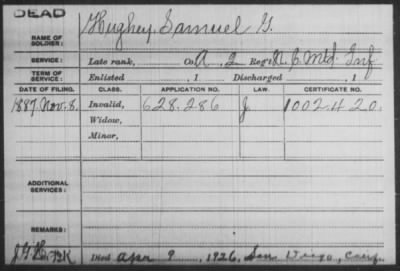 DEAD
NAME OF SOLDIER: Hughey, Samuel G.
SERVICE: Late rank, Co. A, 2 Reg't N. C. Mtd. Inf
TERM OF SERVICE: Enlisted , 1 Discharged , 1
DATE OF FILING. CLASS. APPLICATION NO. LAW. CERTIFICATE NO.
1887 Nov. 8. Invalid, 628.286 J. 1002.420.
Widow,
Minor,
ADDITIONAL SERVICES:
REMARKS:
Died Apr 9, 1926, San Diego, Calif.